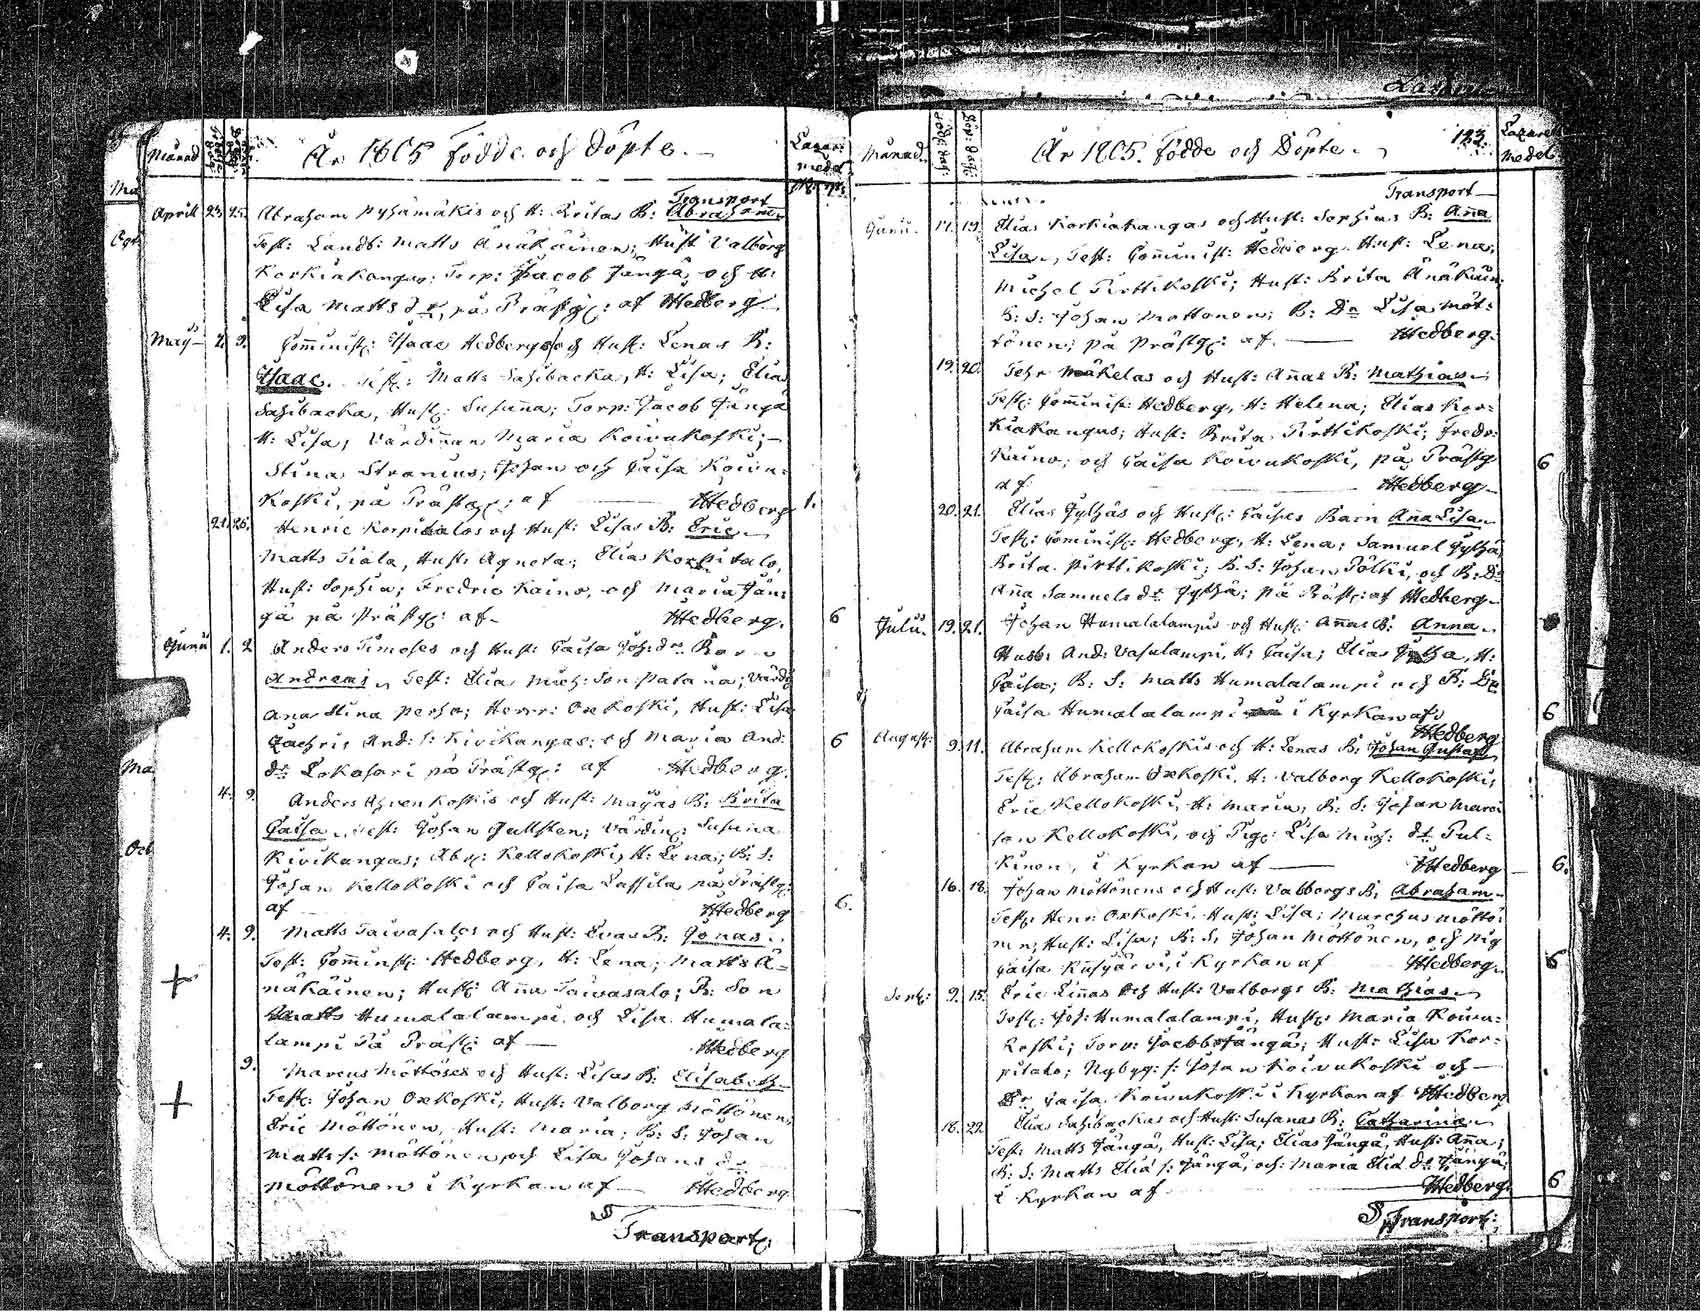 Månad
År 1805 Födde och Döpte.
Lazar:
medel
Transport
Aprill 23. 25. Abraham Pyhämäkis och H: Britas B: Abraham
Test: Landb: Matts Änäkäinen; Hust: Valborg
Korkiakangas: Torp: Jacob Jängä, och H:
Lisa Matts dr, på Prästg: af Hedberg
May 2. 3. Comminist: Isaac Hedbergs och Hust: Lenas B:
Isaac. Test: Matts Sahibacka, H: Lisa; Elias
Sahibacka, Hust: Susanna; Torp: Jacob Jängä
H: Lisa; Värdinnan Maria Koivukoski;
Stina Stranius; Johan och Caisa Koivu-
koski, på Prästg: af Hedberg 1.
21. 26. Henric Korpitalos och Hust: Lisas B: Eric
Matts Tiala, Hust: Agneta; Elias Korpitalo,
Hust: Sophia; Fredric Kaino, och Maria Jän-
gä på Prästg: af Hedberg. 6
Junii 1. 2 Anders Timoses och Hust: Caisa Joh: dr Barn
Andreas, Test: Elia Mich: Son Patana; Värd:
Ana Stina Perho; Henr: Oxkoski, Hust: Lisa
Zachris And: S: Kivikangas: och Maria And:
dr Lokasari på Prästg: af Hedberg. 6
4. 9. Anders Ahvenkoskis och Hust: Majas B: Brita
Caisa, Test: Johan Jullsten; Värdin: Susanna
Kivikangas; Abr: Kellokoski, H: Lena; B: S:
Johan Kellokoski och Caisa Lassila på Prästg:
af Hedberg 6.
4. 9. Matts Taivasalos och Hust: Evas B: Jonas
Test: Comminist: Hedberg, H: Lena; Matts Ä-
näkäinen; Hust: Anna Taivasalo; B: Son
Matts Humalalampi och Lisa Humala-
lampi På Präst: af Hedberg
9. Marcus Möttöses och Hust: Lisas B: Elisabeth
Test: Johan Oxkoski; Hust: Valborg Möttönen;
Eric Möttönen, Hust: Maria; B: S: Johan
Matts s: Möttönen och Lisa Johans dr
Möttönen i Kyrkan af Hedberg.
Transport:
Månad.
År 1805. Födde och Döpte.
123.
Lazaretts
medel.
Transport
Junii. 17. 19. Elias Korkiakangas och Hust: Sophias B: Anna
Lisa, Test: Comminist: Hedberg. Hust: Lena;
Michel Pirttikoski; Hust: Brita Änäkäin:
B: S: Johan Mattonen; B: Dr Lisa Möt-
tönen; på Prästg: af Hedberg.
19. 20. Mäkelas och Hust: Annas B: Mathias
Test: Comminist: Hedberg, H: Helena; Elias Kor-
kiakangas; Hust: Brita Pirttikoski; Fredr:
Kaino; och Caisa Koivukoski, på Prästg 6
af Hedberg
20. 21. Elias Jylhäs och Hust: Caises Barn Anna Lisa
Test: Comminist: Hedberg, H: Lena; Samuel Jylhä,
Brita Pirttikoski; B: S: Johan Pölkki, och B: Dr
Anna Samuels dr Jylhä; på Präst: af Hedberg
Julii. 19. 21. Johan Humalalampis och Hust: Annas B: Anna
Husb: And: Vasulampi, H: Caisa; Elias Jylhä, H:
Caisa; B: S: Matts Humalalampi och B: Dr
Caisa Humalalampi i Kyrkan af 6
Hedberg
August: 9. 11. Abraham Kellokoskis och H: Lenas B: Johan Gustaf
Test: Abraham Oxkoski, H: Valborg Kellokoski;
Eric Kellokoski, H: Maria; B: S: Johan
son Kellokoski, och Pig: Lisa Mich: dr Pul-
kinen, i Kyrkan af Hedberg 6.
16. 18. Johan Möttönens och Hust: Valborgs B: Abraham
Test: Henr: Oxkoski, Hust: Lisa; Marchus Möttö-
nen; Hust: Lisa; B: S: Johan Möttönen, och Pig
Caisa i Kyrkan af Hedberg. 6
Sept: 9. 15. Eric Linnas Och Hust: Valborgs B: Mathias
Test: Joh: Humalalampi, Hust: Maria Koivu-
koski; Torp: Jacob Jängä; Hust: Lisa Kor-
pitalo; Nybyg: s: Johan Koivukoski och
Dr Caisa Koivukoski i Kyrkan af Hedberg
16. 22. Elias Sahibackas och Hust: Susanas B: Catharina
Test: Matts Jängä, Hust: Lisa; Elias Jängä, Hust: Anna;
B: S: Matts Elia s: Jängä; och Maria Elia dr Jängä;
i Kyrkan af Hedberg. 6
Transport: